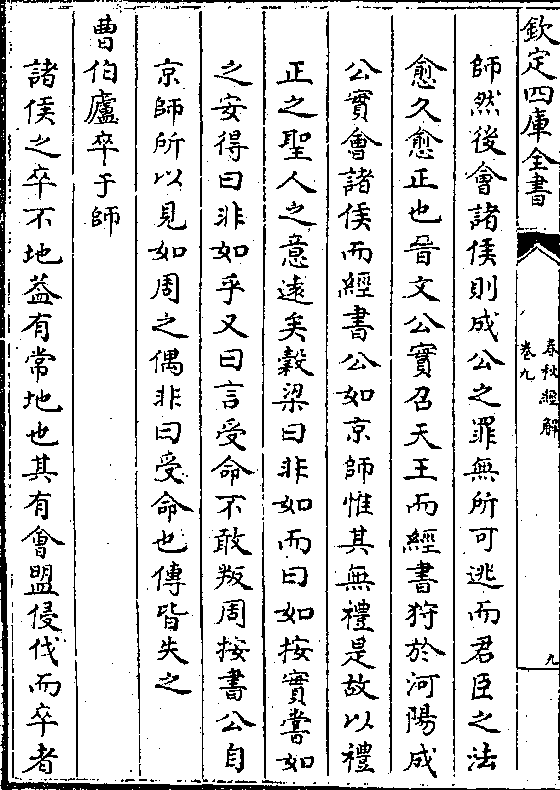 欽定四庫全書
春秋經解
卷九
九
師然後會諸侯則成公之罪無所可逃而君臣之法
愈久愈正也晉文公實召天王而經書狩於河陽成
公實會諸侯而經書公如京師惟其無禮是故以禮
正之聖人之意遠矣穀梁曰非如而曰如按實嘗如
之安得曰非如乎又曰言受命不敢叛周按書公自
京師所以見如周之偶非曰受命也傳皆失之
曹伯廬卒于師
諸侯之卒不地葢有常地也其有會盟侵伐而卒者